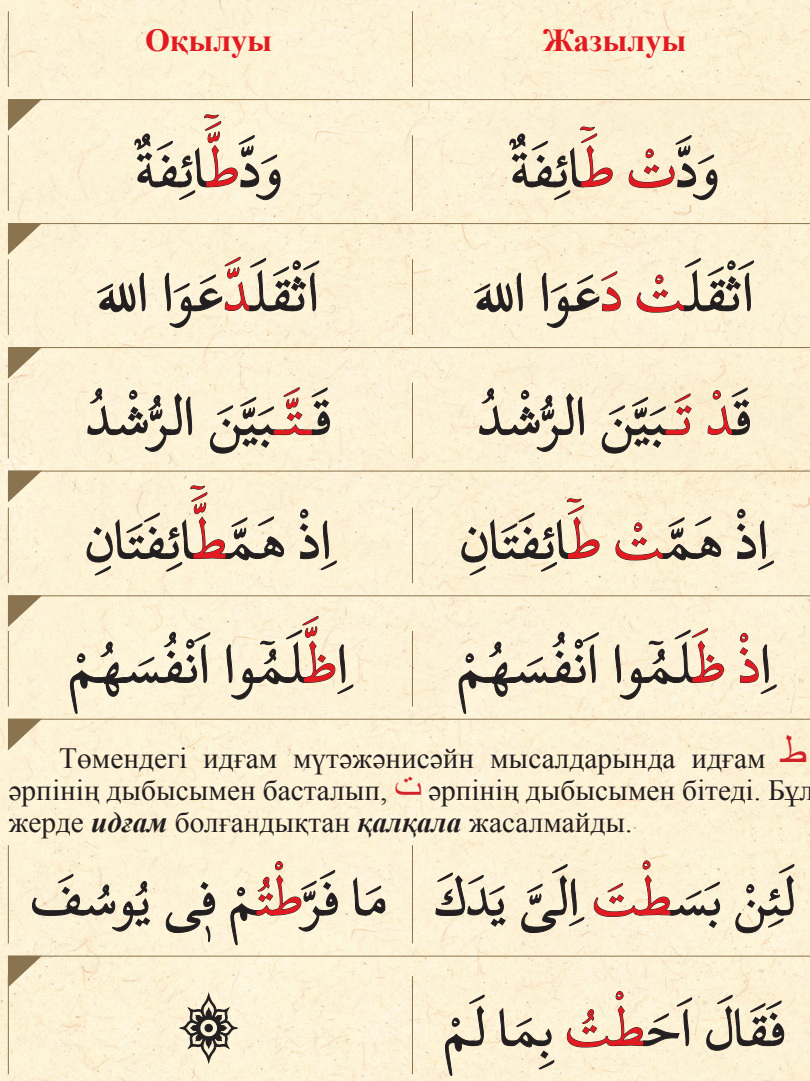 Жазылуы Оқылуы
وَدَّتْ طَٓائِفَةٌ وَدَّطَّٓائِفَةٌ
اَثْقَلَتْ دَعَوَا اللهَ اَثْقَلَدَّعَوَا اللهَ
قَدْ تَبَيَّنَ الرُّشْدُ قَتَّبَيَّنَ الرُّشْدُ
اِذْ هَمَّتْ طَٓائِفَتَانِ اِذْ هَمَّطَّٓائِفَتَانِ
اِذْ ظَلَمُٓوا اَنْفُسَهُمْ اِظَّلَمُٓوا اَنْفُسَهُمْ
Төмендегі идғам мүтәжәнисәйн мысалдарында идғам ط
әрпінің дыбысымен басталып, ت әрпінің дыбысымен бітеді. Бұл
жерде идғам болғандықтан қалқала жасалмайды.
لَئِنْ بَسَطْتَ اِلَىَّ يَدَكَ مَا فَرَّطْتُمْ فٖى يُوسُفَ
فَقَالَ اَحَطْتُ بِمَا لَمْ